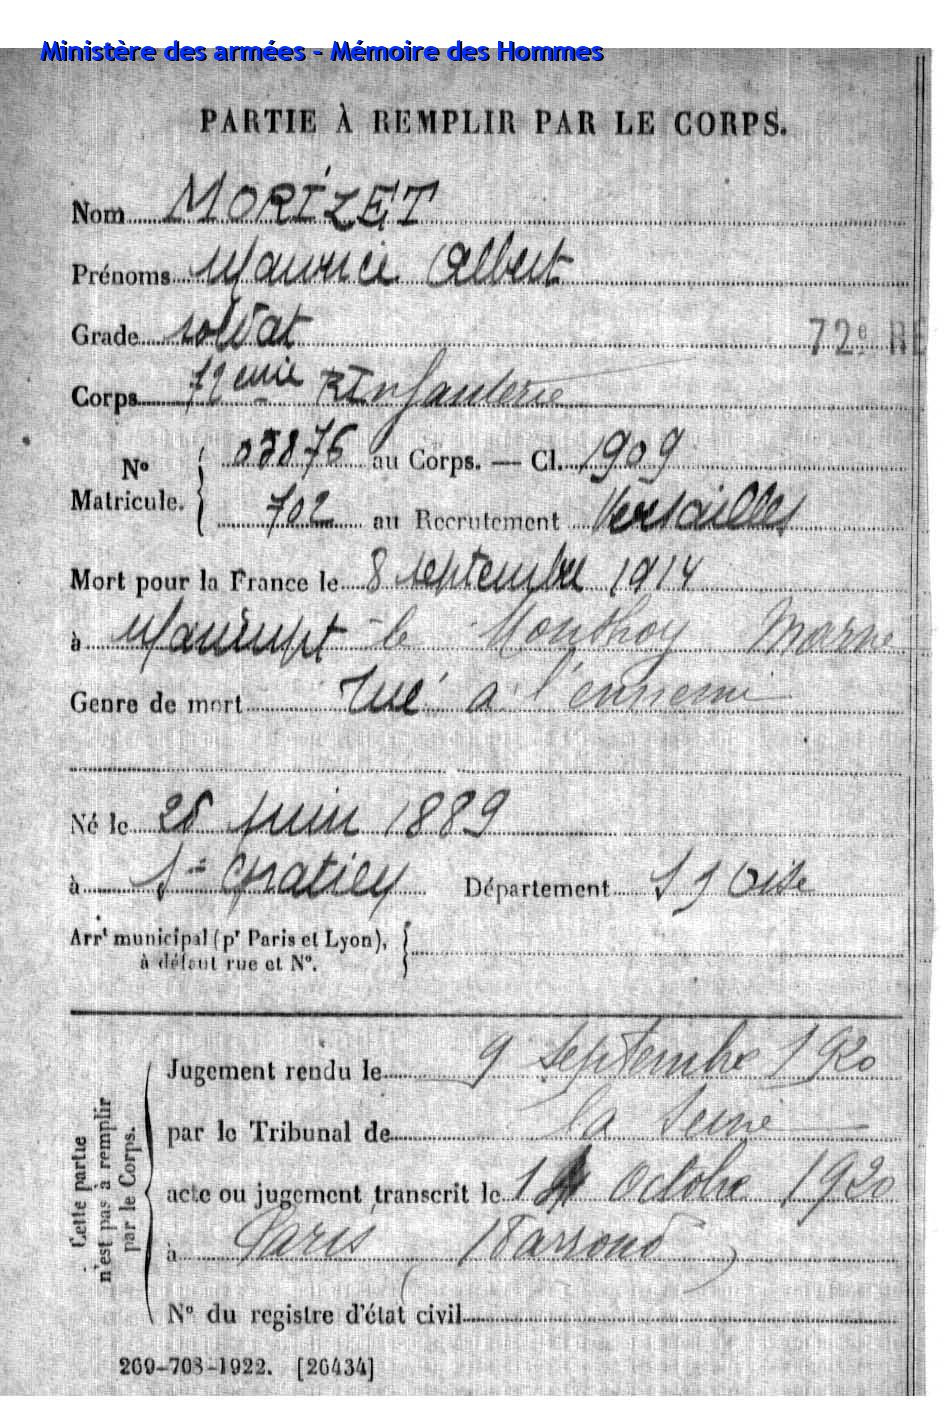 Ministère des armées - Mémoire des Hommes
PARTIE À REMPLIR PAR LE CORPS.
Nom MORIZET
Prénoms Maurice Albert
Grade soldat
72e RE
Corps 72eme RInfanterie
No Matricule. 03876 au Corps. — Cl. 1909
702 au Recrutement Versailles
Mort pour la France le 8 septembre 1914
à Maurupt-le Monthoy Marne
Genre de mort Tué à l'ennemi
Né le 26 juin 1889
à St Gratien Département S & Oise
Arrt municipal (pr Paris et Lyon),
à défaut rue et No.
Cette partie
n'est pas à remplir
par le Corps.
Jugement rendu le 9 Septembre 1920
par le Tribunal de la Seine
acte ou jugement transcrit le 14 Octobre 1920
à Paris 18 arrond
No du registre d'état civil
269-708-1922. [26434]